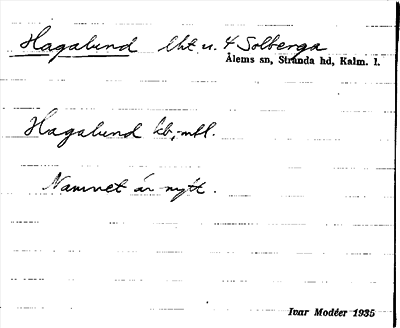 Hagalund lht u. 4 Solberga
Ålems sn, Stranda hd, Kalm. l.
Hagalund kb, mtl.
Namnet är nytt.
Ivar Modéer 1935